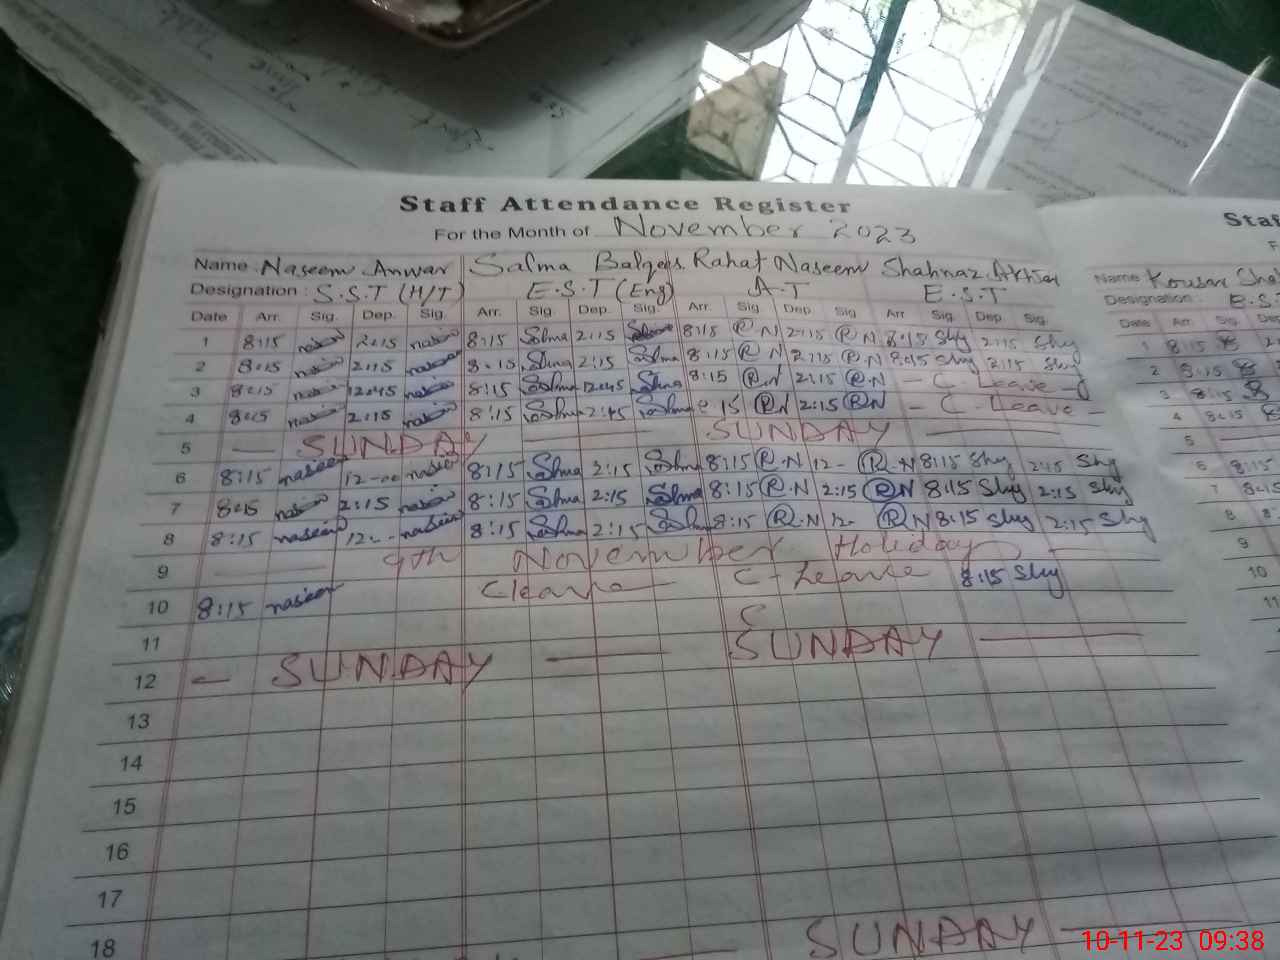 Staff Attendance Register
For the Month of November 2023
Name: Naseem Anwar Salma Balqees. Rahat Naseem Shahnaz Akhtar
Designation: S.S.T (H/T) E.S.T (Eng) A.T E.S.T
Date Arr. Sig. Dep. Sig. Arr. Sig. Dep. Sig. Arr. Sig. Dep. Sig. Arr Sig. Dep. Sig.
1 8:15 2:15 8:15 Salma 2:15 Salma 8:15 R.N 2:15 R.N 8:15 Shy 2:15 Shy
2 8:15 2:15 8:15 Salma 2:15 Salma 8:15 R.N 2:15 R.N 8:15 Shy 2:15 Shy
3 8:15 12:45 8:15 Salma 12:45 Salma 8:15 R.N 2:15 R.N - C-Leave -
4 8:15 2:15 8:15 Salma 2:15 Salma 8:15 R.N 2:15 R.N - C-Leave -
5 — SUNDAY — SUNDAY —
6 8:15 naseem 12-00 naseem 8:15 Salma 2:15 Salma 8:15 R.N 12- R.N 8:15 Shy 2:15 Shy
7 8:15 naseem 2:15 naseem 8:15 Salma 2:15 Salma 8:15 R.N 2:15 R.N 8:15 Shy 2:15 Shy
8 8:15 naseem 12-- naseem 8:15 Salma 2:15 Salma 8:15 R.N 12- R.N 8:15 Shy 2:15 Shy
9 — 9th November Holiday —
10 8:15 naseem C leave — C-Leave 8:15 Shy
11 C
12 — SUNDAY — SUNDAY —
13
14
15
16
17
18 SUNDAY —
Name: Kousar
Designation: E.S.
Date Arr. Sig.
1 8:15
2 8:15
3 8:15
4 8:15
5
6 8:15
7 8:15
8 8:15
9
10
11
10-11-23 09:38